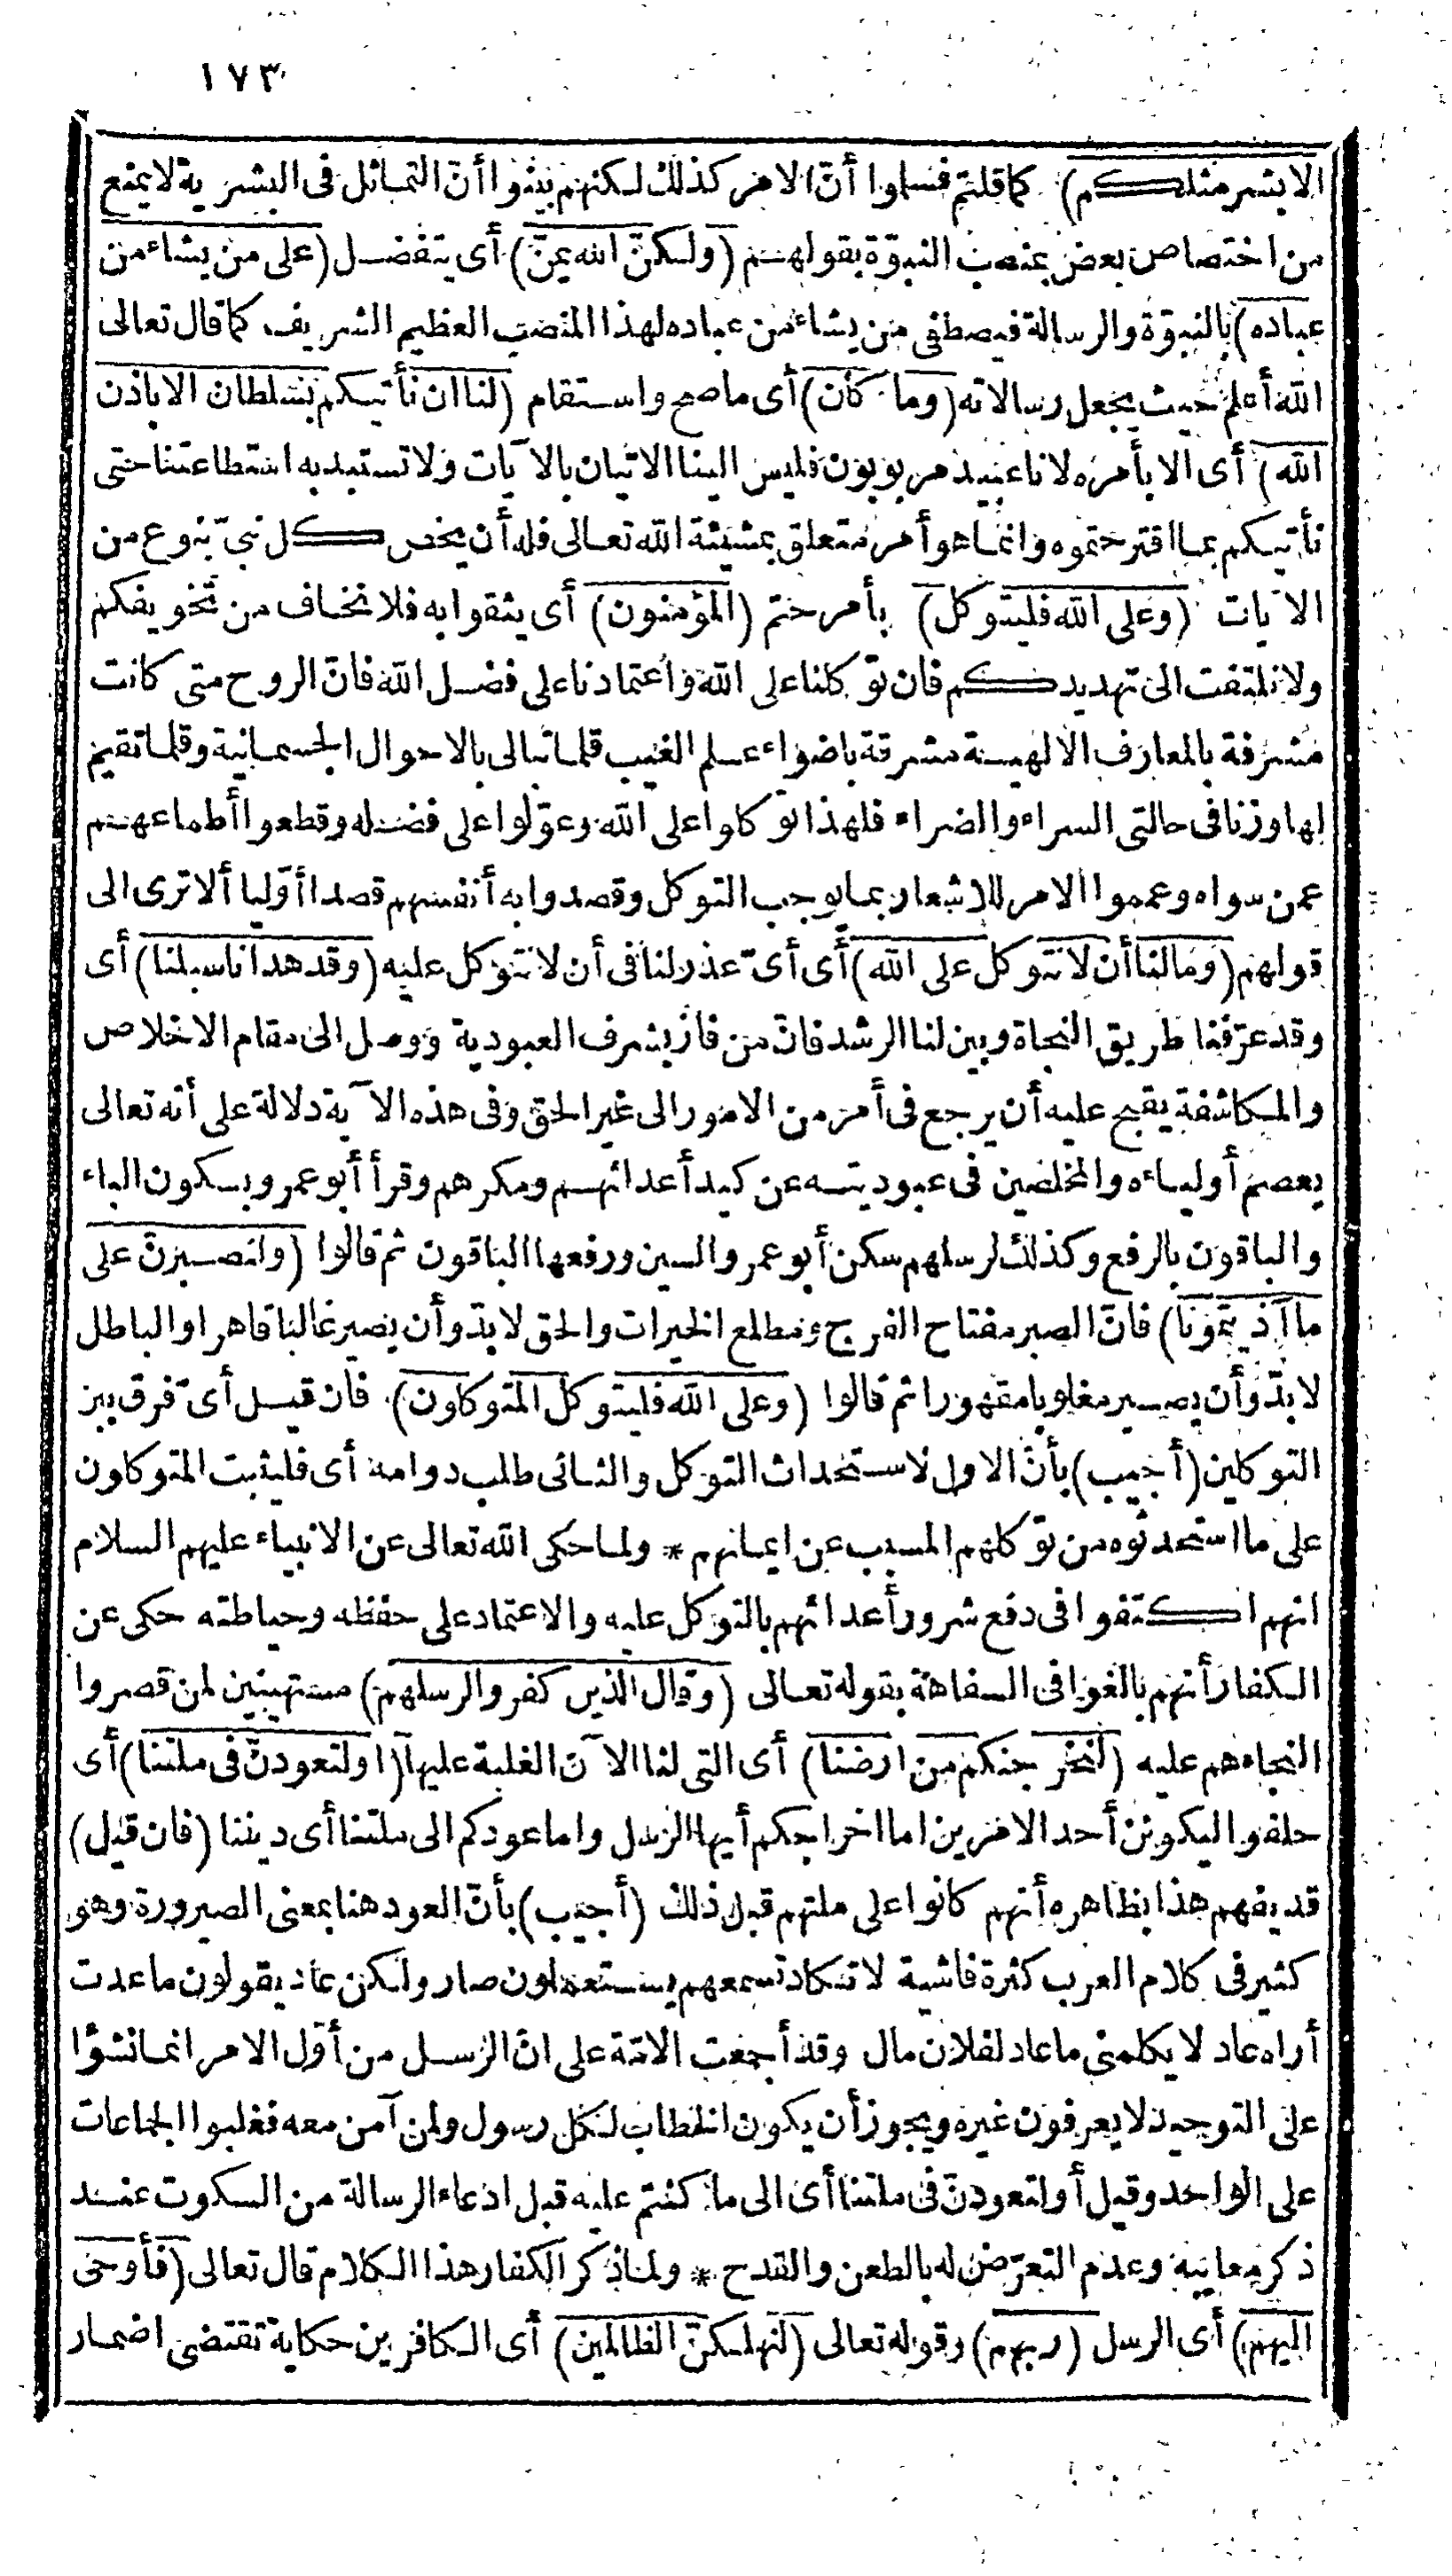 ١٧٣
الا بشر مثلكم) كما قلتم فسلموا أنّ الامر كذلك لكنهم بينوا أنّ التماثل فى البشرية لا يمنع
من اختصاص بعض بمنصب النبوّة بقولهم (ولكنّ الله يمنّ) أى يتفضل (على من يشاء من
عباده) بالنبوّة والرسالة فيصطفى من يشاء من عباده لهذا المنصب العظيم الشريف كما قال تعالى
الله أعلم حيث يجعل رسالاته (وما كان) أى ما صح واستقام (لنا ان نأتيكم بسلطان الا باذن
الله) أى الا بأمره لانا عبيد مربوبون فليس الينا الاتيان بالآيات ولا تستبد به استطاعتنا حتى
نأتيكم بما اقترحتموه وانما هو أمر متعلق بمشيئة الله تعالى فله أن يخص كل نبىّ بنوع من
الآيات (وعلى الله فليتوكل) بأمر حتم (المؤمنون) أى يثقوا به فلا نخاف من تخويفكم
ولا نلتفت الى تهديدكم فان توكلنا على الله واعتمادنا على فضل الله فانّ الروح متى كانت
مشرفة بالمعارف الالهية مشرقة باضواء علم الغيب قلما تبالى بالاحوال الجسمانية وقلما تقيم
لها وزنا فى حالتى السراء والضراء فلهذا توكلوا على الله وعوّلوا على فضله وقطعوا أطماعهم
عمن سواه وعمموا الامر للاشعار بما يوجب التوكل وقصدوا به أنفسهم قصدا أوّليا ألا ترى الى
قولهم (وما لنا أن لا نتوكل على الله) أى أىّ عذر لنا فى أن لا نتوكل عليه (وقد هدانا سبلنا) أى
وقد عرّفنا طريق النجاة وبين لنا الرشد فانّ من فاز بشرف العبودية ووصل الى مقام الاخلاص
والمكاشفة يقبح عليه أن يرجع فى أمر من الامور الى غير الحق وفى هذه الآية دلالة على أنه تعالى
يعصم أولياءه والمخلصين فى عبوديته عن كيد أعدائهم ومكرهم وقرأ أبو عمرو بسكون الباء
والباقون بالرفع وكذلك لرسلهم سكن أبو عمرو السين ورفعها الباقون ثم قالوا (ولنصبرنّ على
ما آذيتمونا) فانّ الصبر مفتاح الفرج ومطلع الخيرات والحق لا بدّ وأن يصير غالبا قاهرا والباطل
لا بدّ وأن يصير مغلوبا مقهورا ثم قالوا (وعلى الله فليتوكل المتوكلون) فان قيل أىّ فرق بين
التوكلين (أجيب) بأنّ الاول لاستحداث التوكل والثانى طلب دوامه أى فليثبت المتوكلون
على ما استحدثوه من توكلهم المسبب عن ايمانهم * ولما حكى الله تعالى عن الانبياء عليهم السلام
انهم اكتفوا فى دفع شرور أعدائهم بالتوكل عليه والاعتماد على حفظه وحياطته حكى عن
الكفار أنهم بالغوا فى السفاهة بقوله تعالى (وقال الذين كفروا لرسلهم) مستهينين لمن قصروا
التجاءهم عليه (لنخرجنكم من ارضنا) أى التى لنا الآن الغلبة عليها (او لتعودنّ فى ملتنا) أى
حلفوا ليكوننّ أحد الامرين اما اخراجكم أيها الرسل واما عودكم الى ملتنا أى ديننا (فان قيل)
قد يفهم هذا بظاهره أنهم كانوا على ملتهم قبل ذلك (أجيب) بأنّ العود هنا بمعنى الصيرورة وهو
كثير فى كلام العرب كثرة فاشية لا تكاد تسمعهم يستعملون صار ولكن عاد يقولون ما عدت
أراه عاد لا يكلمنى ما عاد لفلان مال وقد أجمعت الامّة على انّ الرسل من أوّل الامر انما نشؤا
على التوحيد لا يعرفون غيره ويجوز أن يكون الخطاب لكل رسول ولمن آمن معه فغلبوا الجماعات
على الواحد وقيل أو لتعودنّ فى ملتنا أى الى ما كنتم عليه قبل ادعاء الرسالة من السكوت عند
ذكر معايبه وعدم التعرّض له بالطعن والقدح * ولما ذكر الكفار هذا الكلام قال تعالى (فأوحى
اليهم) أى الرسل (ربهم) وقوله تعالى (لنهلكنّ الظالمين) أى الكافرين حكاية تقتضى اضمار